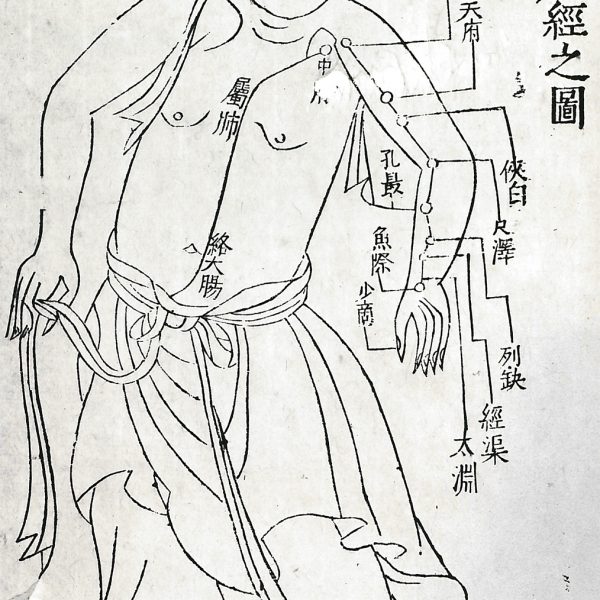 經之圖
天府
中府
屬肺
俠白
孔最
尺澤
魚際
絡大腸
少商
列缺
經渠
太淵